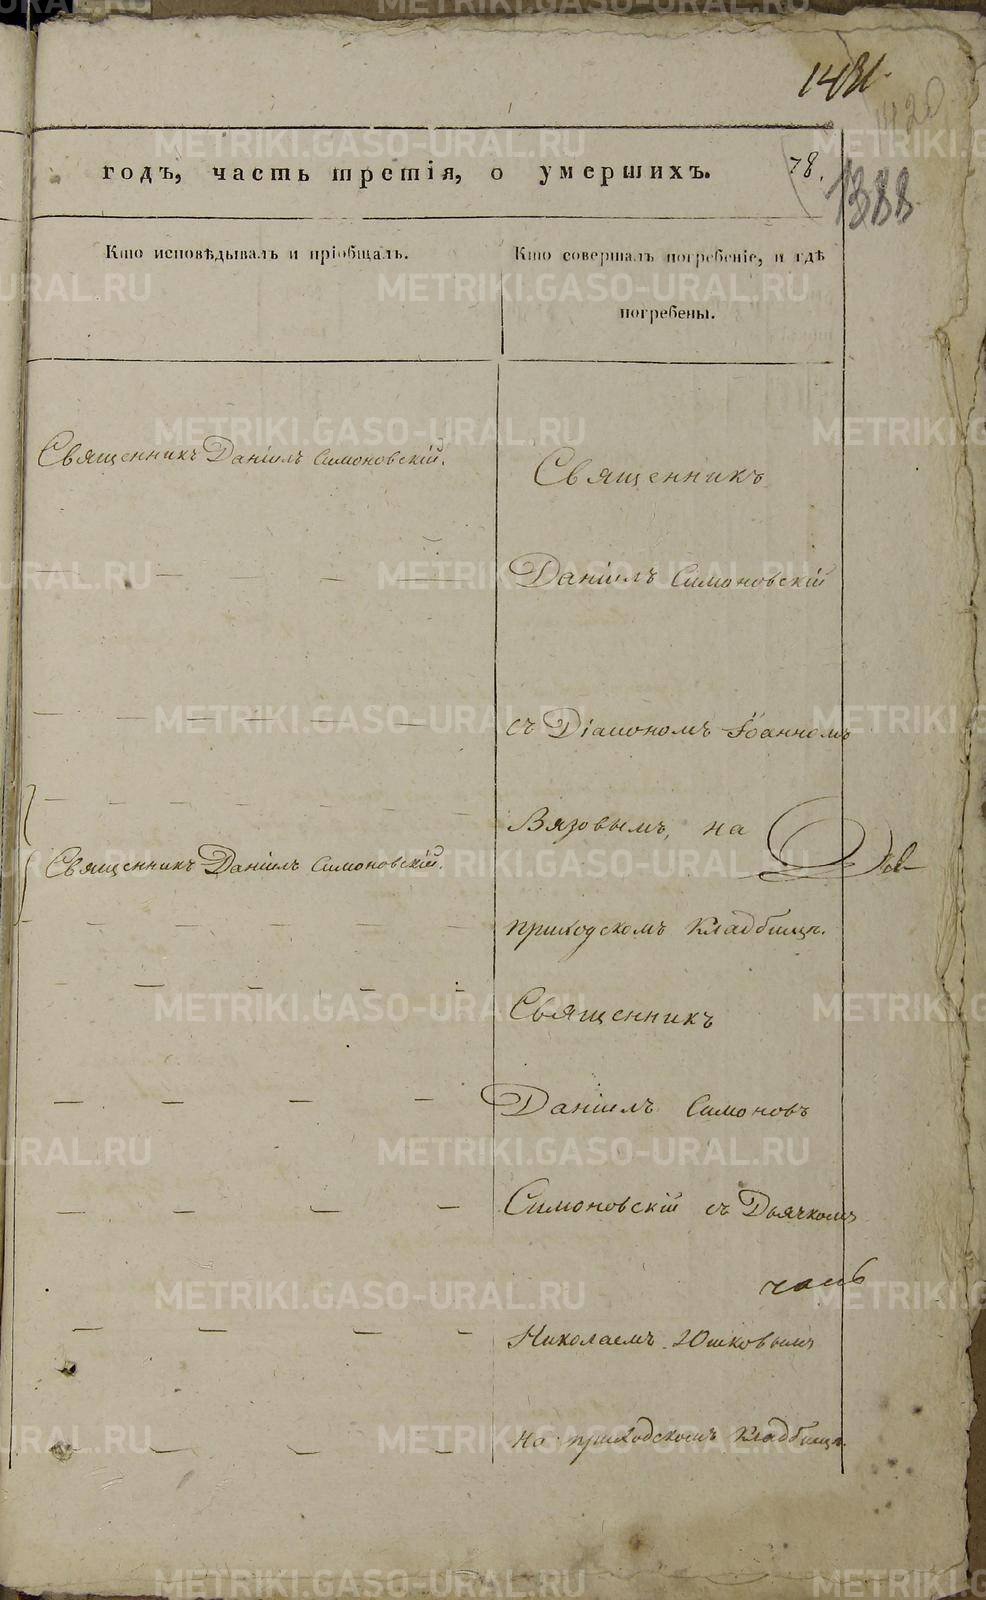 1481.
1420
годъ, часть третія, о умершихъ.
78.
1388
Кто исповѣдывалъ и пріобщалъ.
Кто совершалъ погребеніе, и гдѣ
погребены.
Священникъ Даніилъ Симоновскій.
Священникъ
Даніилъ Симоновскій
съ Діакономъ Іоанномъ
Вязовымъ, на
Священникъ Даніилъ Симоновскій.
приходскомъ кладбищѣ.
Священникъ
Даніилъ Симоновъ
Симоновскій съ Дьячкомъ
Николаемъ Юшковымъ
на приходскомъ кладбищѣ.
METRIKI.GASO-URAL.RU